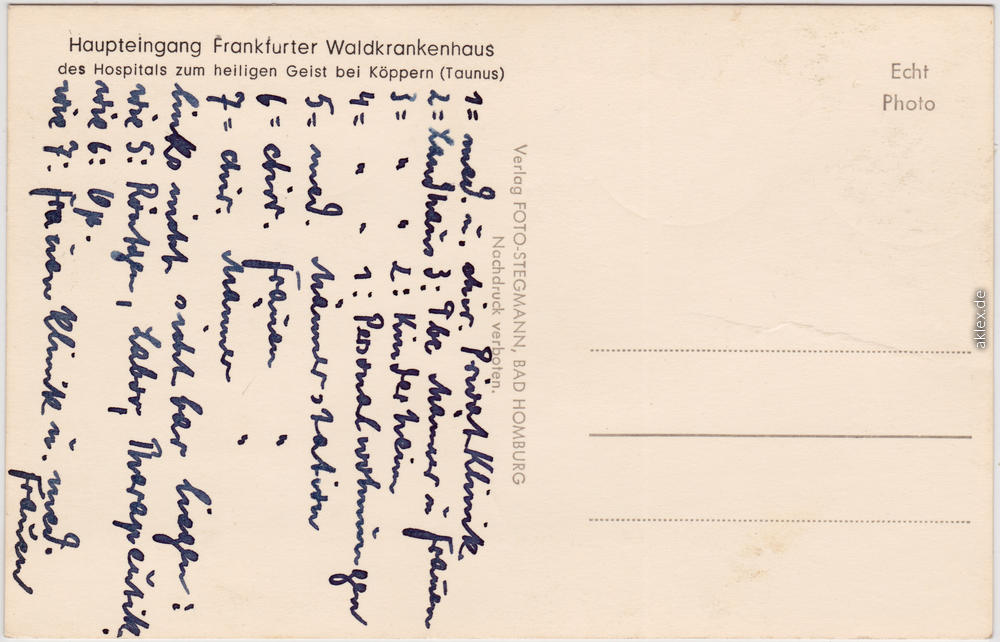 Haupteingang Frankfurter Waldkrankenhaus
des Hospitals zum heiligen Geist bei Köppern (Taunus)
Echt
Photo
1= med. u. chir. Privat Klinik
2= Landhaus 3: Tbc Männer u Frauen
3= " " 2: Kinderheim
4= " " 1: Personalwohnungen
5= med. Männerstation
6= chir. Frauen "
7= chir. Männer "
links nicht sichtbar liegen:
wie 5: Röntgen, Labor, Therapeutik.
wie 6: Op.
wie 7: Frauen Klinik u. med.
Frauen
Verlag FOTO-STEGMANN, BAD HOMBURG
Nachdruck verboten.
aklex.de